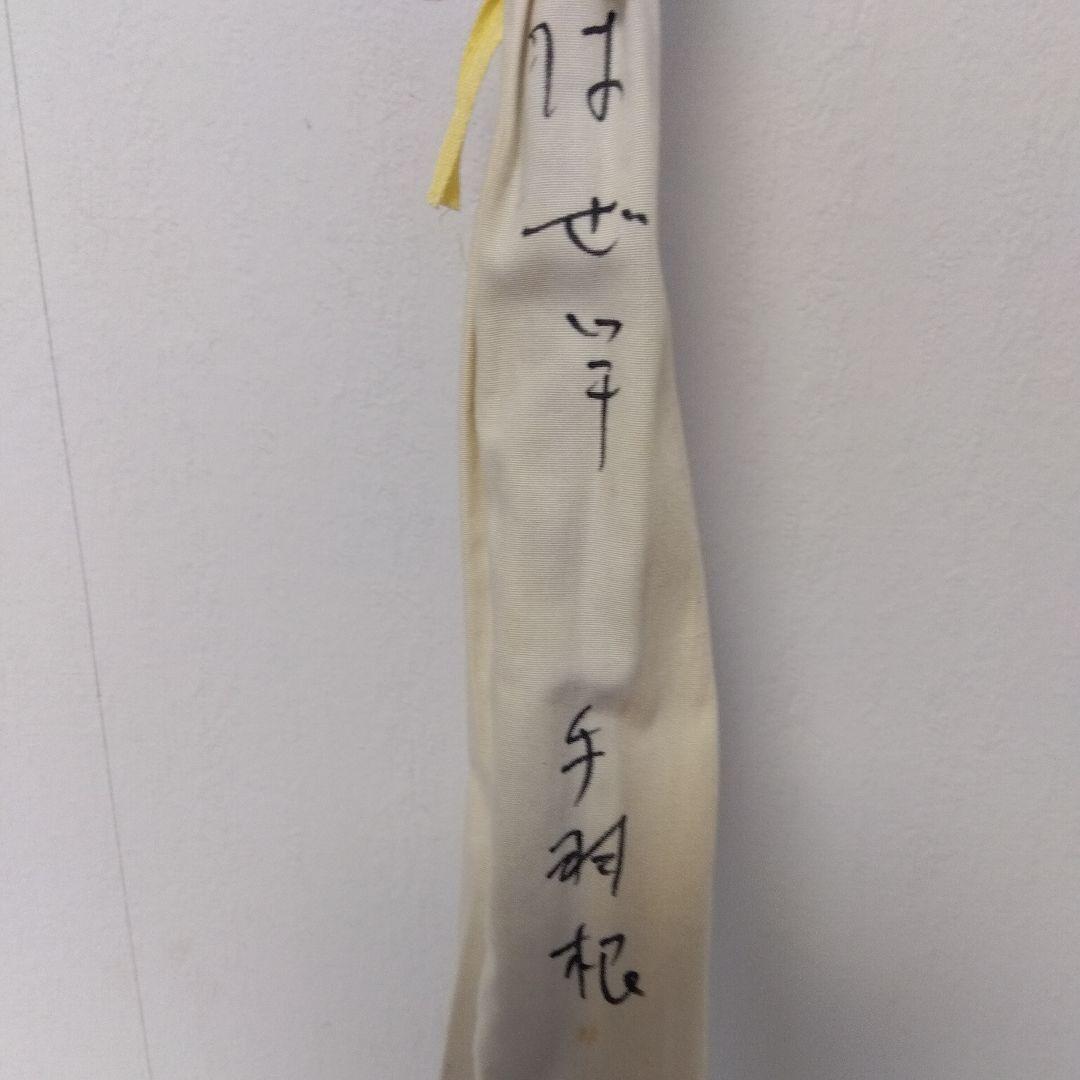 はぜ竿 手羽根